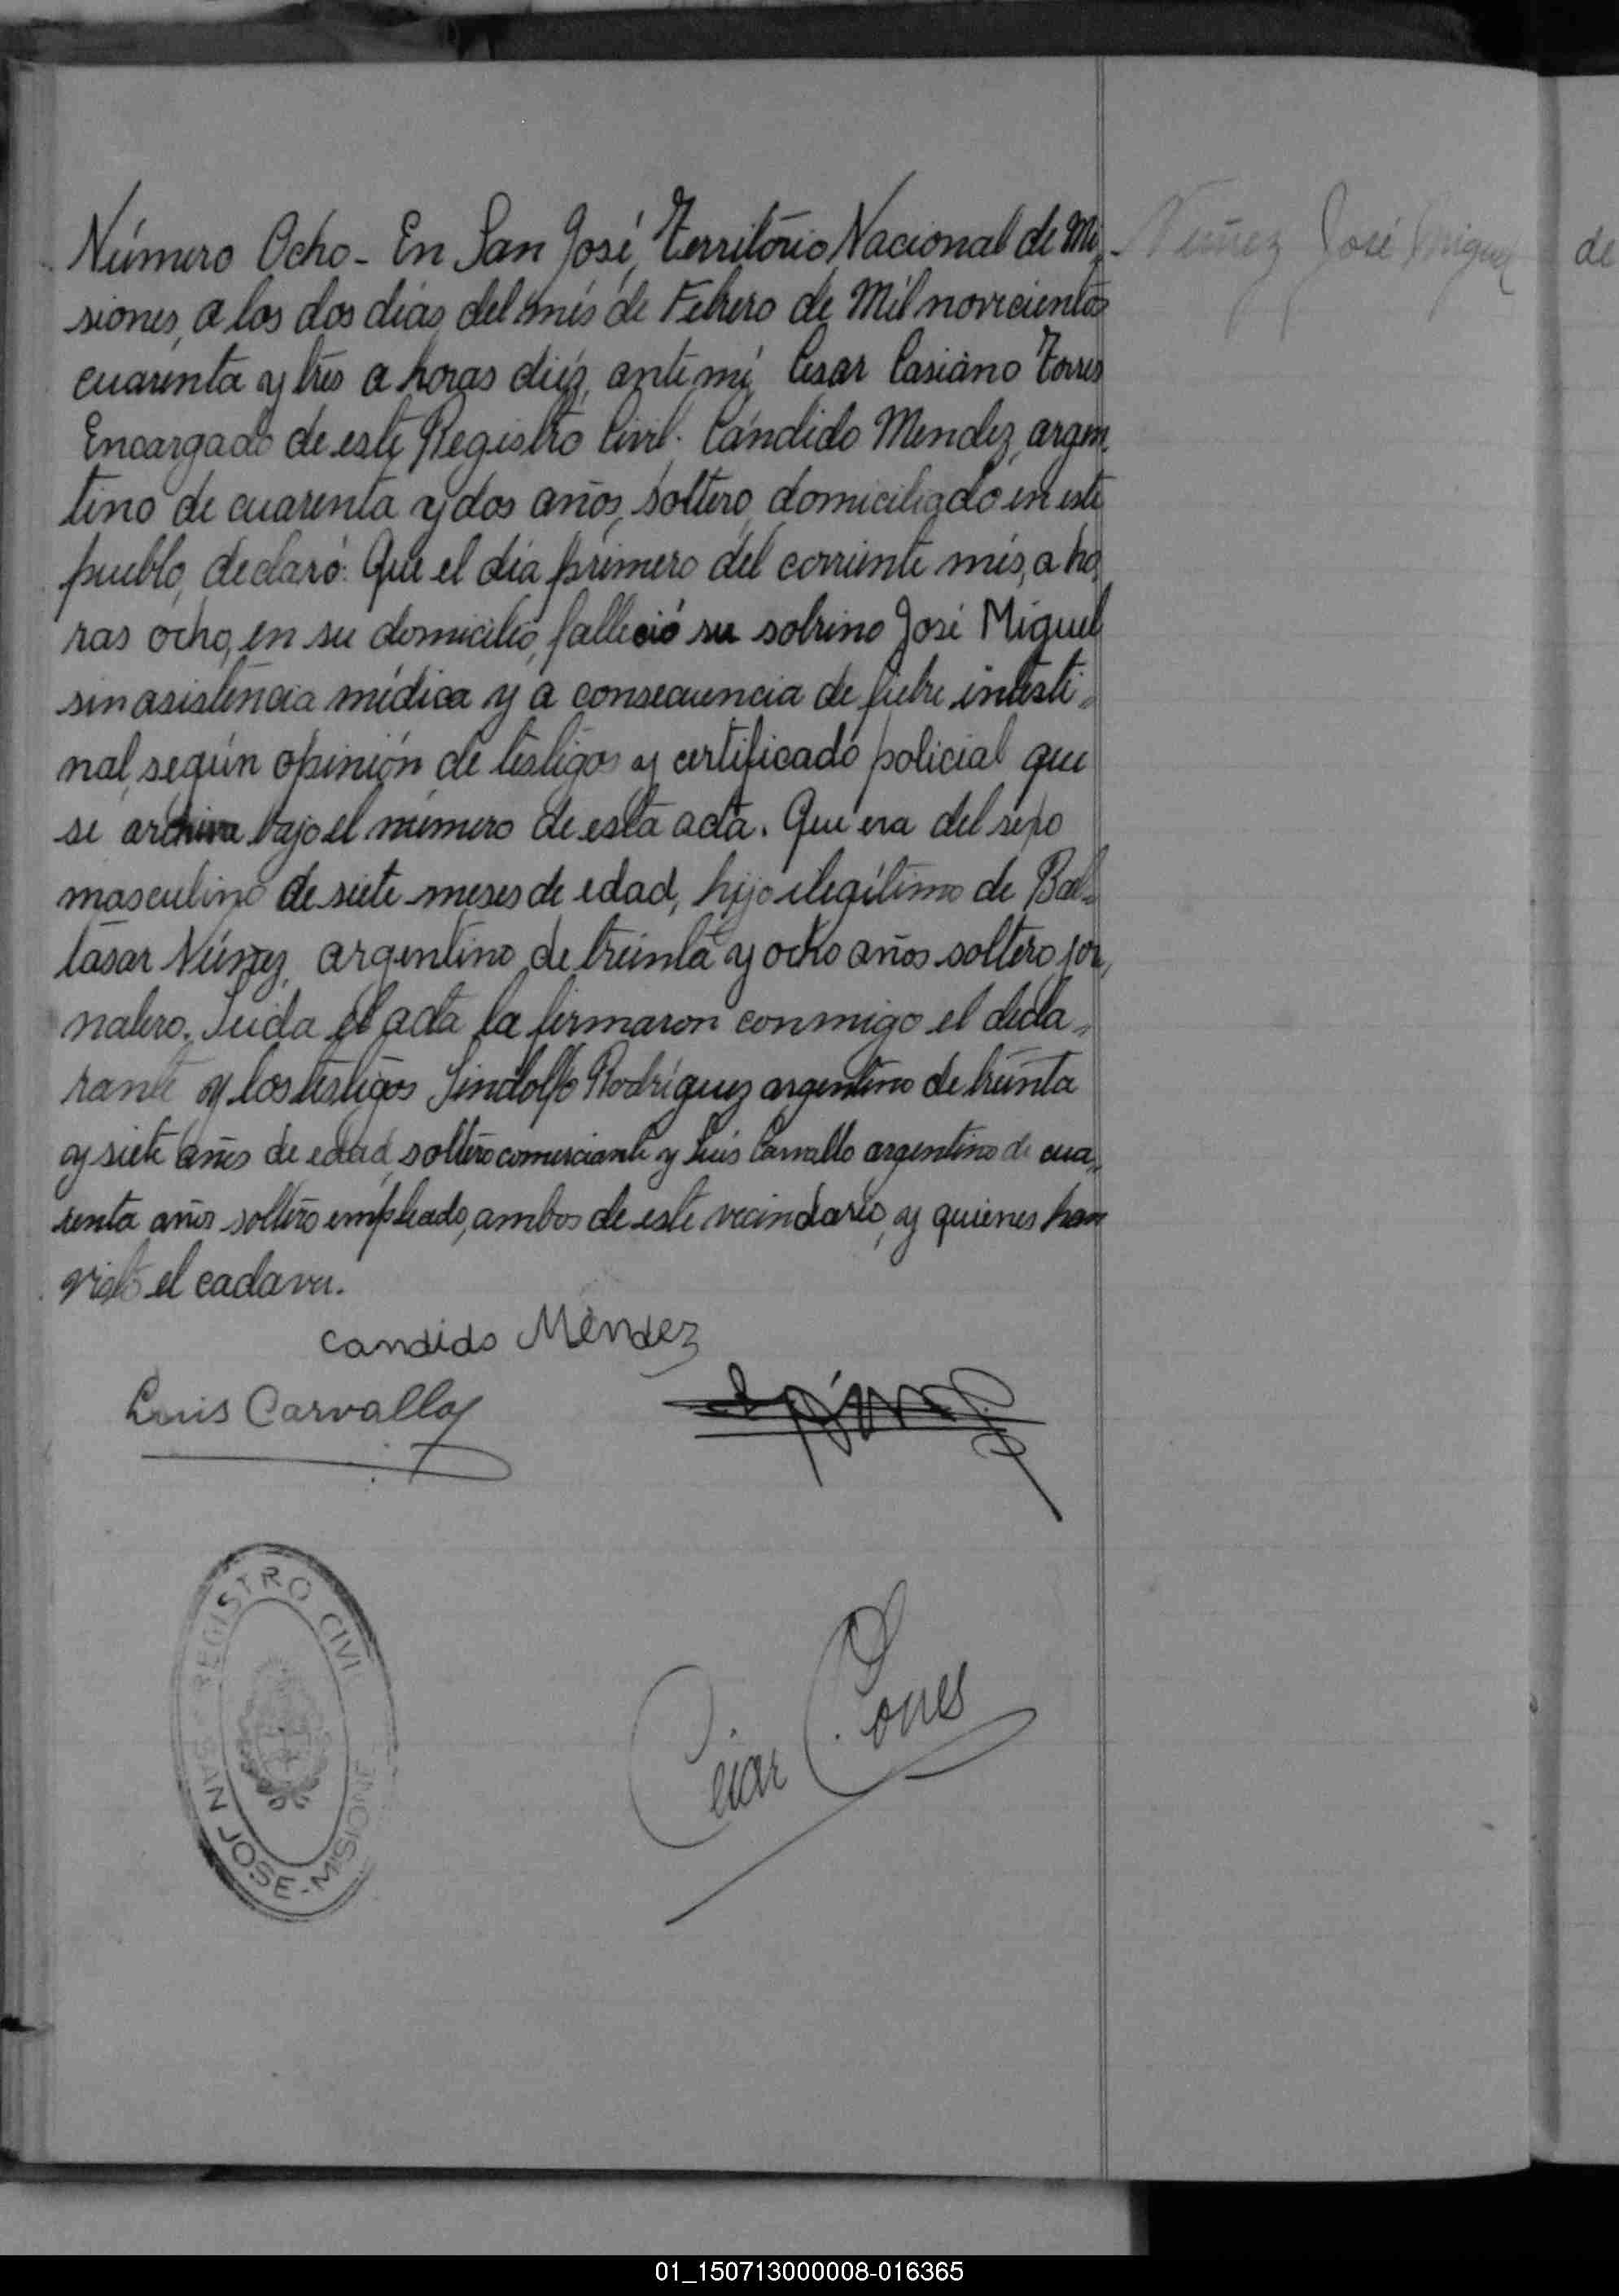 Número Ocho - En San José, Territorio Nacional de Mi-
siones, a los dos días del mes de Febrero de Mil novecientos
cuarenta y tres a horas diez, ante mí, Cesar Casiano Torres
Encargado de este Registro Civil. Cándido Mendez, argen-
tino de cuarenta y dos años, soltero, domiciliado en este
pueblo, declaró: Que el día primero del corriente mes, a ho-
ras ocho, en su domicilio, falleció su sobrino José Miguel
sin asistencia médica y a consecuencia de fiebre intesti-
nal, según opinión de testigos y certificado policial que
se archiva bajo el número de esta acta. Que era del sexo
masculino de siete meses de edad, hijo ilegítimo de Bal-
tasar Núñez, argentino de treinta y ocho años soltero, jor-
nalero. Leida el acta la firmaron conmigo el decla-
rante y los testigos Lindolfo Rodríguez argentino de treinta
y siete años de edad, soltero comerciante y Luis Carvallo argentino de cua-
renta años soltero empleado, ambos de este vecindario, y quienes han
visto el cadaver.
Candido Méndez
Luis Carvallo
REGISTRO CIVIL
SAN JOSE - MISIONES
César Torres
Nuñez José Miguel
de
01_150713000008-016365